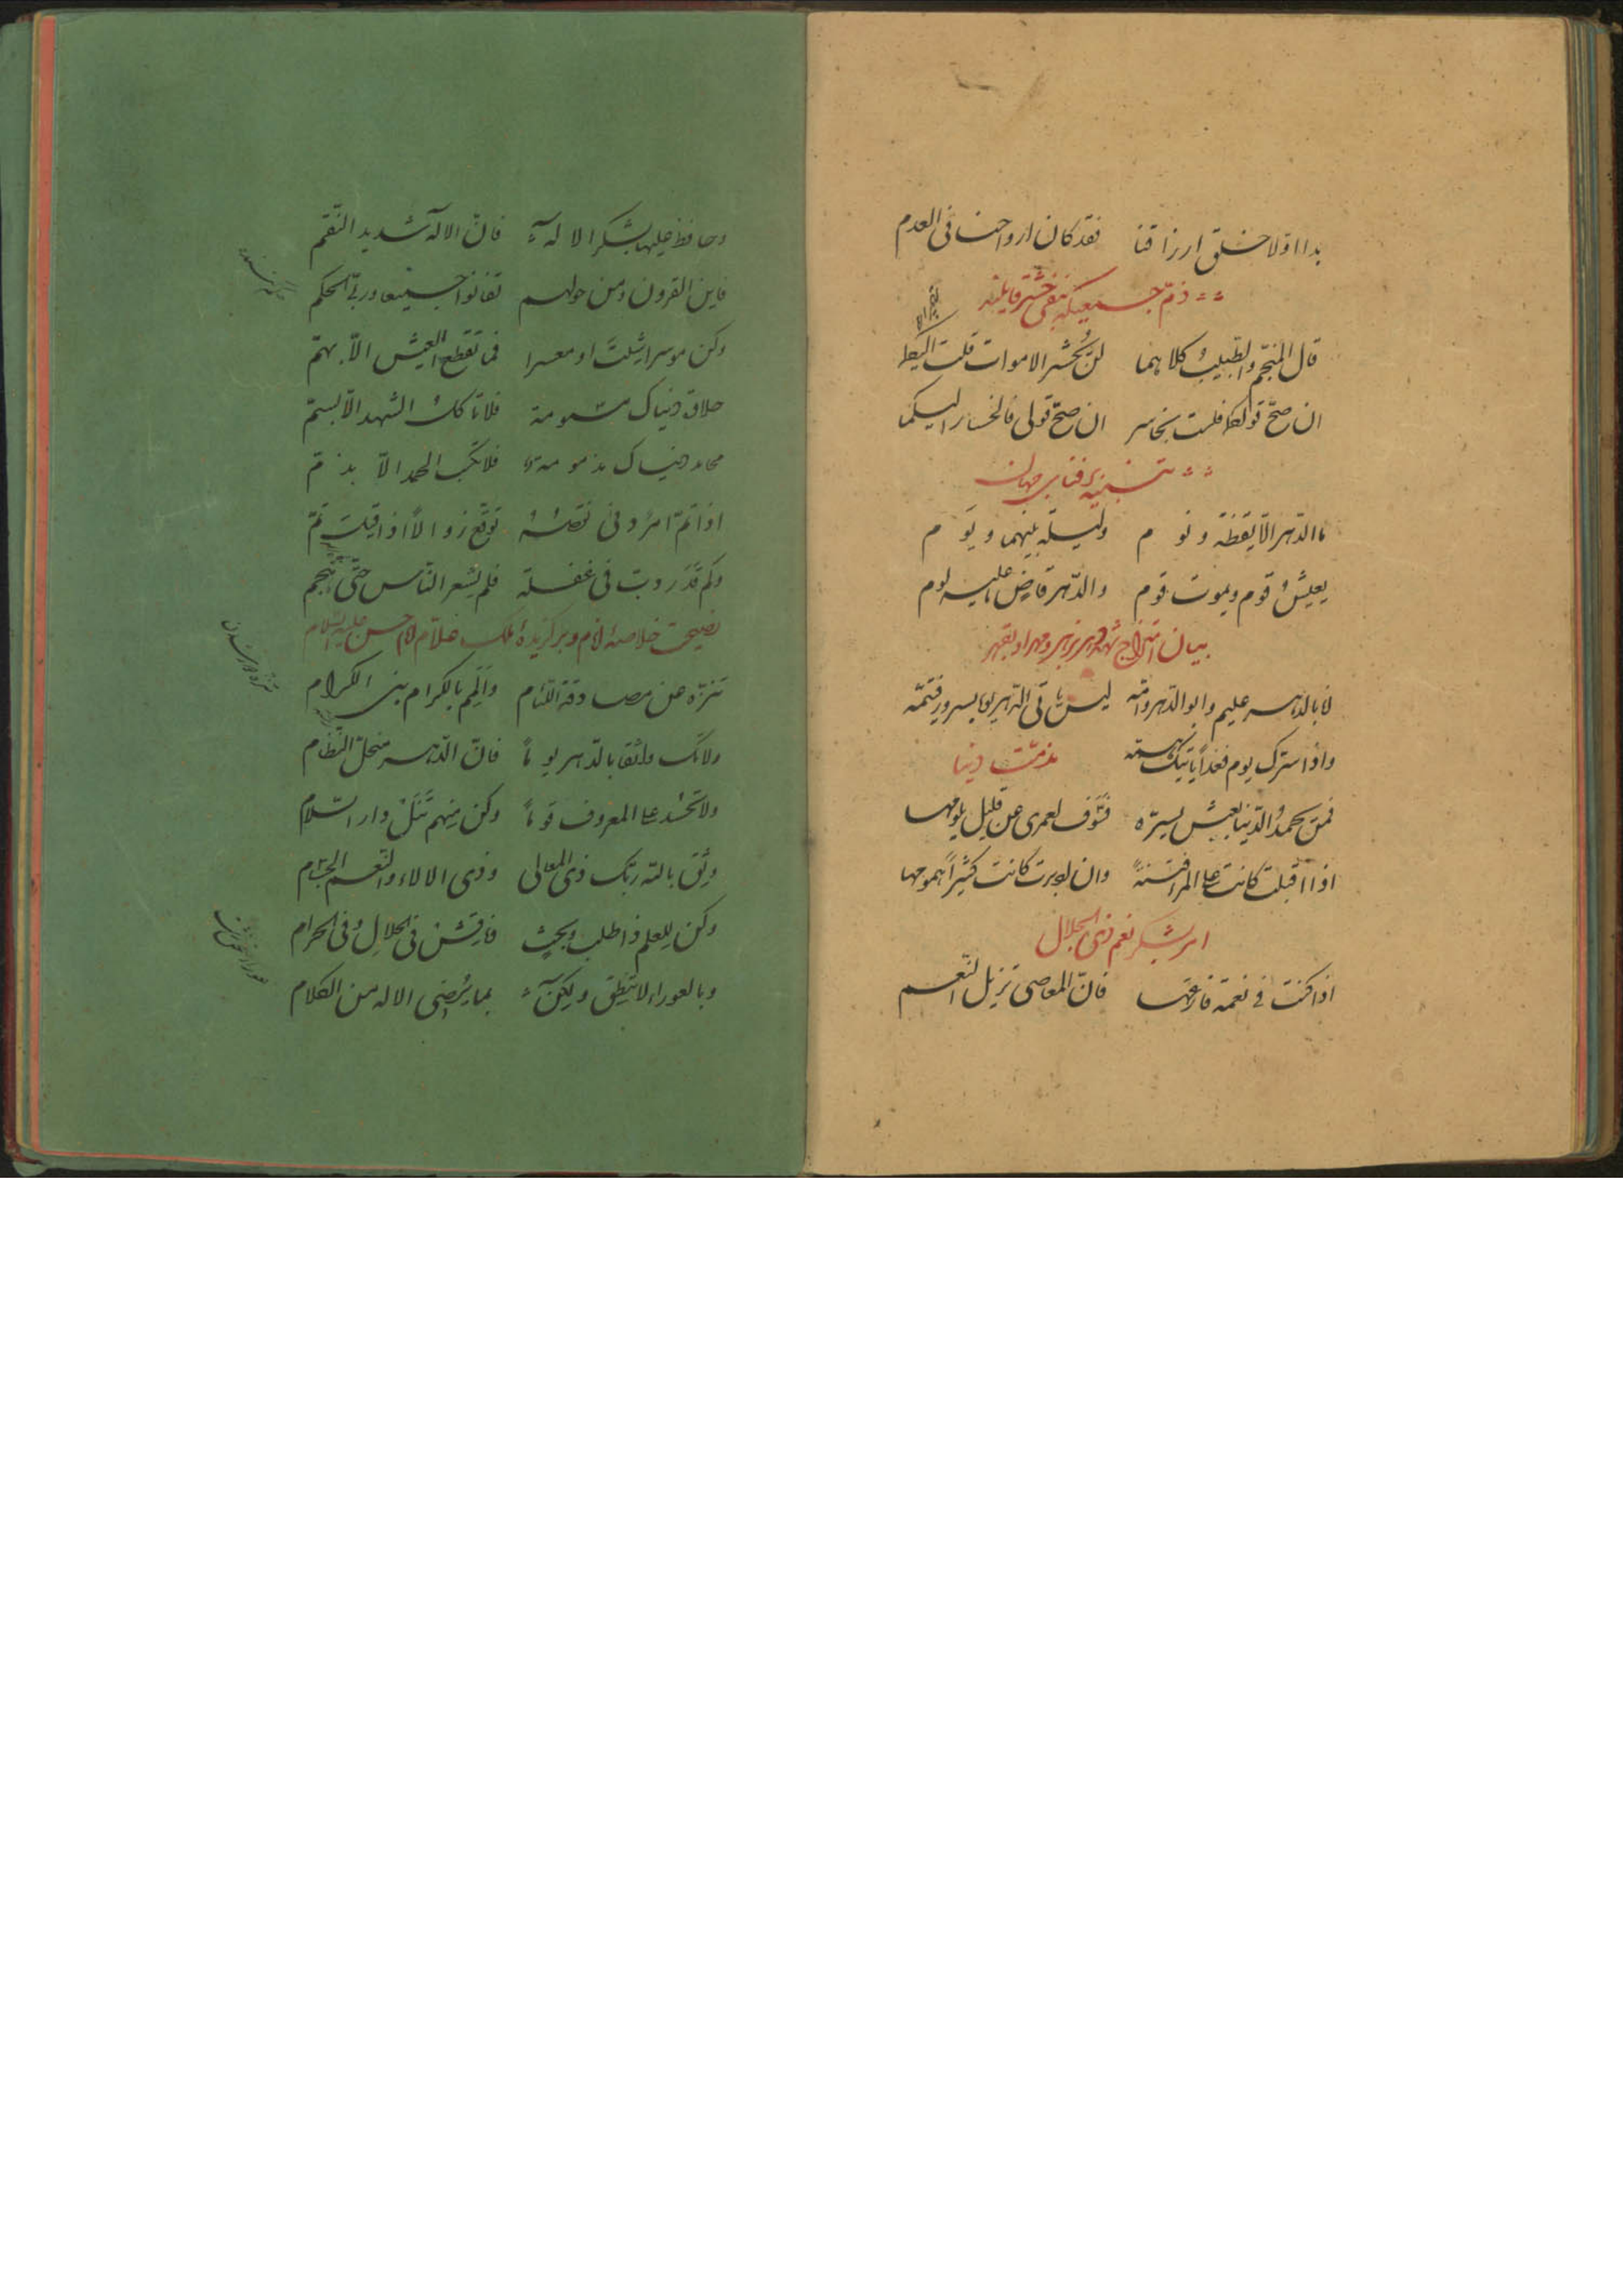 بدا اوّلا خلق ارزاقنا فقد كان ارواحنا فى العدم
ذمّ جمعيكه بنفى حشر قايلند
قال المنجّم والطّبيبُ كلاهما لن يُحشر الاموات قلت اليكما
ان صحّ قولكما فلست بخاسر ان صحّ قولى فالخسار اليكما
تنبيه بر فناى جهان
ما الدّهر الّا يقظة و نوم وليلة بينهما و يوم
يعيش قوم ويموت قوم والدّهر قاضٍ ما عليه لوم
بيان امتزاج شهد دهر بزهر و مهر او بقهر
انا بالدّهر عليم وابو الدّهر وامّه ليس ياتى الدّهر يوما بسرور فيتمّه
واذا سترك يوم فغداً ياتيك همّه
مذمّت دنيا
فمن يحمد الدّنيا بعيش يسرّه فسوف لعمرى عن قليل يلومها
اذا اقبلت كانت على المرء فتنة وان ادبرت كانت كثيراً همومها
امر بشكر نعم ذى الجلال
اذا كنت فى نعمة فارعها فانّ المعاصى تزيل النّعم
وحافظ عليها بشكر الاله فانّ الاله شديد النّقم
فاين القرون ومن حولهم تفانوا جميعا وربّ الحكم
وكن موسرا شئت او معسرا فما تقطع العيش الّا بهمّ
حلاوة دنياك مسمومة فلا تاكل الشهد الّا بسمّ
محامد دنياك مذمومة فلا تكسب الحمد الّا بذمّ
اذا تمّ امرٌ دنى نقصه توقّع زوالاً اذا قيل تمّ
وكم قدر دبّ فى غفلة فلم يشعر النّاس حتّى هجم
نصيحت خلاصهٔ انام و برگزيدهٔ ملك علّام امام حسن عليه السّلام
تنزّه عن مصادقة اللّئام والمم بالكرام بنى الكرام
ولا تك واثقا بالدّهر يوماً فانّ الدّهر منحلّ النّظام
ولا تحسد على المعروف قوماً وكن منهم تنل دار السّلام
وثق بالله ربّك ذى المعالى وذى الالاء والنّعم الجسام
وكن للعلم ذا طلب وبحث وناقش فى الحلال وفى الحرام
وبالعوراء لا تنطق ولكن بما يُرضى الاله من الكلام